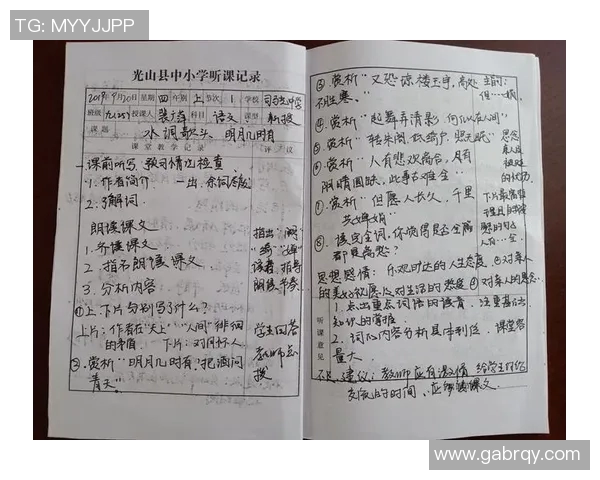 TG: MYYJJPP
光山县中小学听课记录
2019年9月20日 星期 四 年别 上 节次 1 学校 司马光中学
班级 九(25) 授课人 科目 语文 课型 新授
课题 水调歌头·明月几时有
课堂教学记录 评议
课前听写、预习情况检查
1. 作者简介
2. 了解词
朗读课文
1. 齐读课文
2. 指名朗读课文
3. 分析内容
指出
读音, 指导
朗读, 节奏
①上、下片分别写了什么?
上片: 作者在"天上""人间"徘徊
的矛盾 下片: 对月怀人
学生回答
教师点
拨
②. 赏析"明月几时有, 把酒问
青天"
③. 赏析"又恐琼楼玉宇, 高处
不胜寒。"
④. 赏析"起舞弄清影, 何似在人间"
⑤. 赏析"转朱阁, 低绮户, 照无眠"
⑥. 赏析"人有悲欢离合, 月有
阴晴圆缺, 此事古难全"
⑦. 赏析"但愿人长久, 千里
共婵娟"
⑧. 读完全词, 你觉得是否全篇
都是离愁?
思想感情: 乐观旷达的人生态度 ②对亲人
的美好祝愿 ③对生活的热爱 ④对亲人的思念
听课意见
1. 点出重点词语的读音, 注重基础
知识的掌握
2. 词的内容分析具体到位, 课堂容
量大。
建议: 教师应有激情 给学生
交流的时间、应
www.gabrqy.com